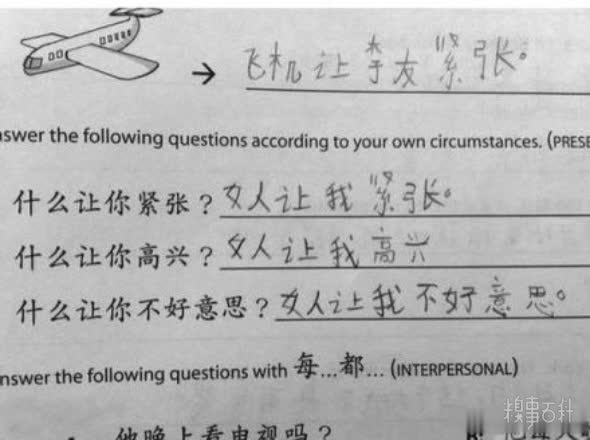 → 飞机让李友紧张。
nswer the following questions according to your own circumstances. (PRESE
什么让你紧张？女人让我紧张。
什么让你高兴？女人让我高兴
什么让你不好意思？女人让我不好意思。
nswer the following questions with 每...都... (INTERPERSONAL)
他晚上看电视吗？
糗事百科